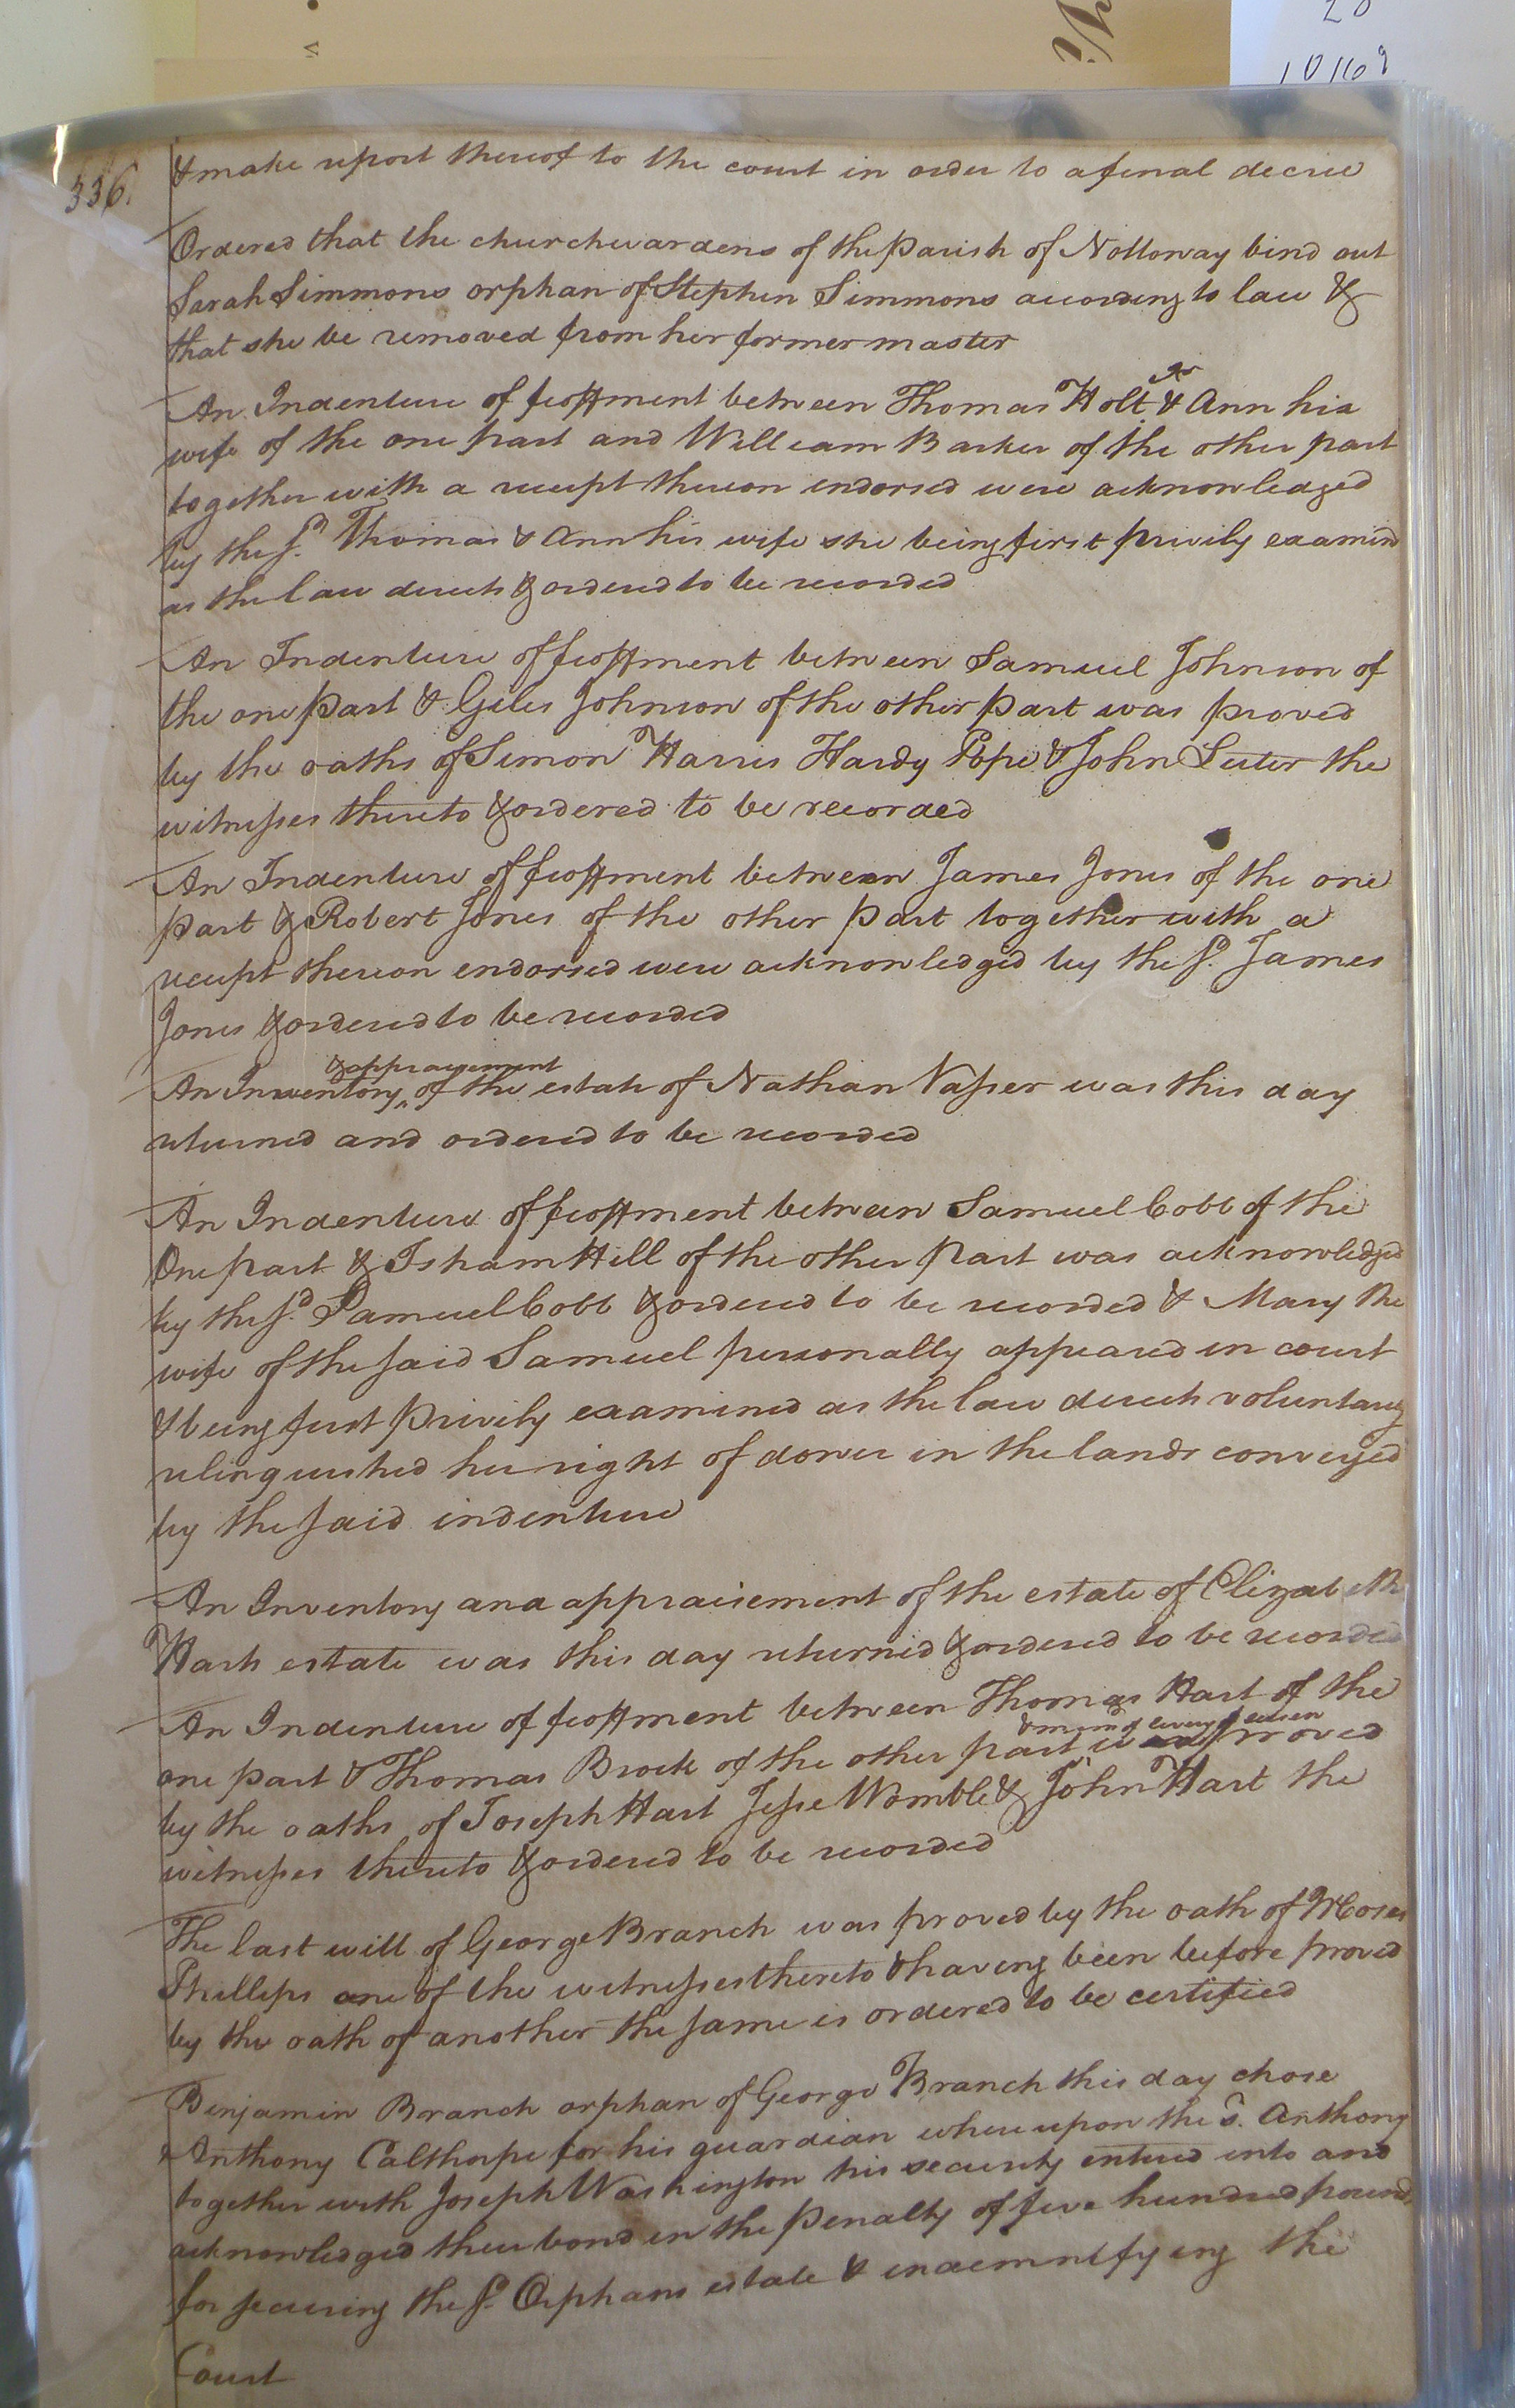 336.
& make report thereof to the court in order to a final decree
Ordered that the churchwardens of the parish of Nottoway bind out
Sarah Simmons orphan of Stephen Simmons according to law &
that she be removed from her former master
An Indenture of feoffment between Thomas Holt Jr & Ann his
wife of the one part and William Barker of the other part
together with a receipt thereon endorsed were acknowledged
by the sd. Thomas & Ann his wife she being first privily examind
as the law directs & ordered to be recorded
An Indenture of feoffment between Samuel Johnson of
the one part & Giles Johnson of the other part was proved
by the oaths of Simon Harris Hardy Pope & John Lester the
witnesses thereto & ordered to be recorded
An Indenture of feoffment between James Jones of the one
part & Robert Jones of the other part together with a
receipt thereon endorsed were acknowledged by the sd. James
Jones & ordered to be recorded
An Inventory & appraisement of the estate of Nathan Vasser was this day
returned and ordered to be recorded
An Indenture of feoffment between Samuel Cobb of the
One part & Isham Hill of the other part was acknowledged
by the sd. Samuel Cobb & ordered to be recorded & Mary the
wife of the said Samuel personally appeared in court
& being first privily examined as the law directs voluntary
relinquished her right of dower in the lands conveyed
by the said indenture
An Inventory and appraisement of the estate of Elizabeth
Harts estate was this day returned & ordered to be recorded
An Indenture of feoffment between Thomas Hart of the
one part & Thomas Brock of the other part & mem.o of livery & seisen was proved
by the oaths of Joseph Hart Jesse Womble & John Hart the
witnesses thereto & ordered to be recorded
The last will of George Branch was proved by the oath of Moses
Phillips one of the witnesses thereto & having been before proved
by the oath of another the same is ordered to be certified
Benjamin Branch orphan of George Branch this day chose
Anthony Calthorpe for his guardian whereupon the sd. Anthony
together with Joseph Washington his security entered into and
acknowledged their bond in the penalty of five hundred pounds
for securing the sd. Orphans estate & indemnifying the
Court